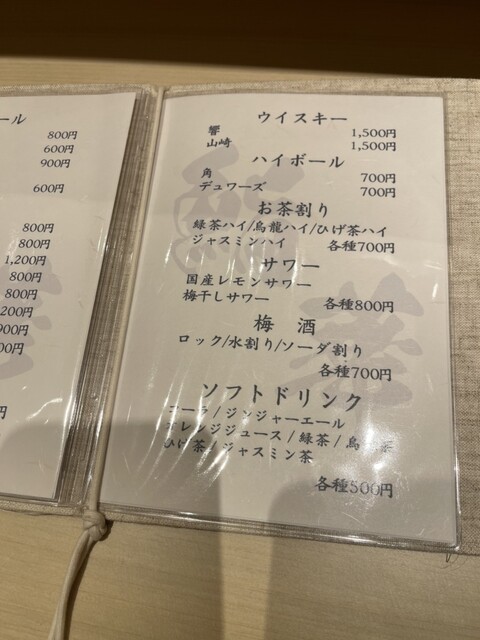 ール
800円
600円
900円
600円
800円
800円
1,200円
800円
800円
ウイスキー
響 1,500円
山崎 1,500円
ハイボール
角 700円
デュワーズ 700円
お茶割り
緑茶ハイ/烏龍ハイ/ひげ茶ハイ
ジャスミンハイ 各種700円
サワー
国産レモンサワー
梅干しサワー 各種800円
梅 酒
ロック/水割り/ソーダ割り
各種700円
ソフトドリンク
コーラ/ジンジャーエール
オレンジジュース/緑茶/烏 茶
ひげ茶/ジャスミン茶
各種500円